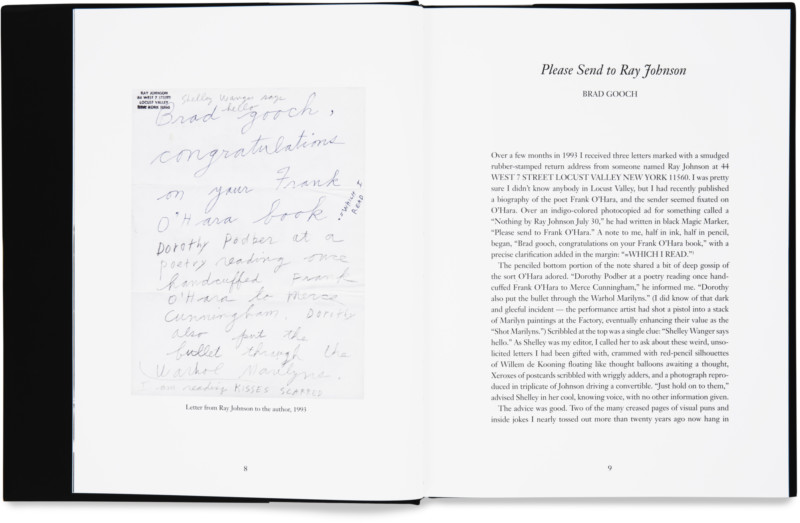 RAY JOHNSON
44 WEST 7 STREET
LOCUST VALLEY
NEW YORK 11560
Shelley Wanger says
hello
Brad gooch,
congratulations
on your Frank
O'Hara book
**WHICH I
READ.
Dorothy Podber at a
poetry reading once
handcuffed Frank
O'Hara to Merce
Cunningham. Dorothy
also put the
bullet through the
Warhol Marilyns.
I am reading KISSES
Letter from Ray Johnson to the author, 1993
8
Please Send to Ray Johnson
BRAD GOOCH
Over a few months in 1993 I received three letters marked with a smudged
rubber-stamped return address from someone named Ray Johnson at 44
WEST 7 STREET LOCUST VALLEY NEW YORK 11560. I was pretty
sure I didn't know anybody in Locust Valley, but I had recently published
a biography of the poet Frank O'Hara, and the sender seemed fixated on
O'Hara. Over an indigo-colored photocopied ad for something called a
“Nothing by Ray Johnson July 30,” he had written in black Magic Marker,
“Please send to Frank O'Hara.” A note to me, half in ink, half in pencil,
began, “Brad gooch, congratulations on your Frank O'Hara book,” with a
precise clarification added in the margin: “»WHICH I READ.”¹
The penciled bottom portion of the note shared a bit of deep gossip of
the sort O'Hara adored. “Dorothy Podber at a poetry reading once hand-
cuffed Frank O'Hara to Merce Cunningham,” he informed me. “Dorothy
also put the bullet through the Warhol Marilyns.” (I did know of that dark
and gleeful incident — the performance artist had shot a pistol into a stack
of Marilyn paintings at the Factory, eventually enhancing their value as the
“Shot Marilyns.”) Scribbled at the top was a single clue: “Shelley Wanger says
hello.” As Shelley was my editor, I called her to ask about these weird, unso-
licited letters I had been gifted with, crammed with red-pencil silhouettes
of Willem de Kooning floating like thought balloons awaiting a thought,
Xeroxes of postcards scribbled with wriggly adders, and a photograph repro-
duced in triplicate of Johnson driving a convertible. “Just hold on to them,”
advised Shelley in her cool, knowing voice, with no other information given.
The advice was good. Two of the many creased pages of visual puns and
inside jokes I nearly tossed out more than twenty years ago now hang in
9